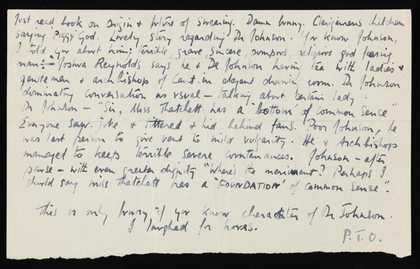 Just read book on Origin & history of swearing. Damn funny. Clergymen's children
saying Piggy God. Lovely story regarding Dr Johnson. You know Johnson,
I told you about him; terribly grave, sincere, pompous religious god fearing
man: – Joshua Reynolds says he & Dr Johnson having tea with ladies &
gentlemen & archbishops of Cant. in elegant drawing room. Dr Johnson
dominating conversation as usual – talking about certain lady.
Dr Johnson – "Sir, Miss Thatchett has a bottom of common sense
Everyone & tittered & hid behind fans. Poor Johnson, he
was last person to give vent to mild vulgarity. He & Archbishops
managed to keep terribly severe countenances. Johnson – after
pause – with even greater dignity "Where's the merriment? Perhaps I
should say miss thatchett has a "FOUNDATION" of common sense".
This is only funny if you know character of Dr Johnson.
I laughed for hours.
P.T.O.